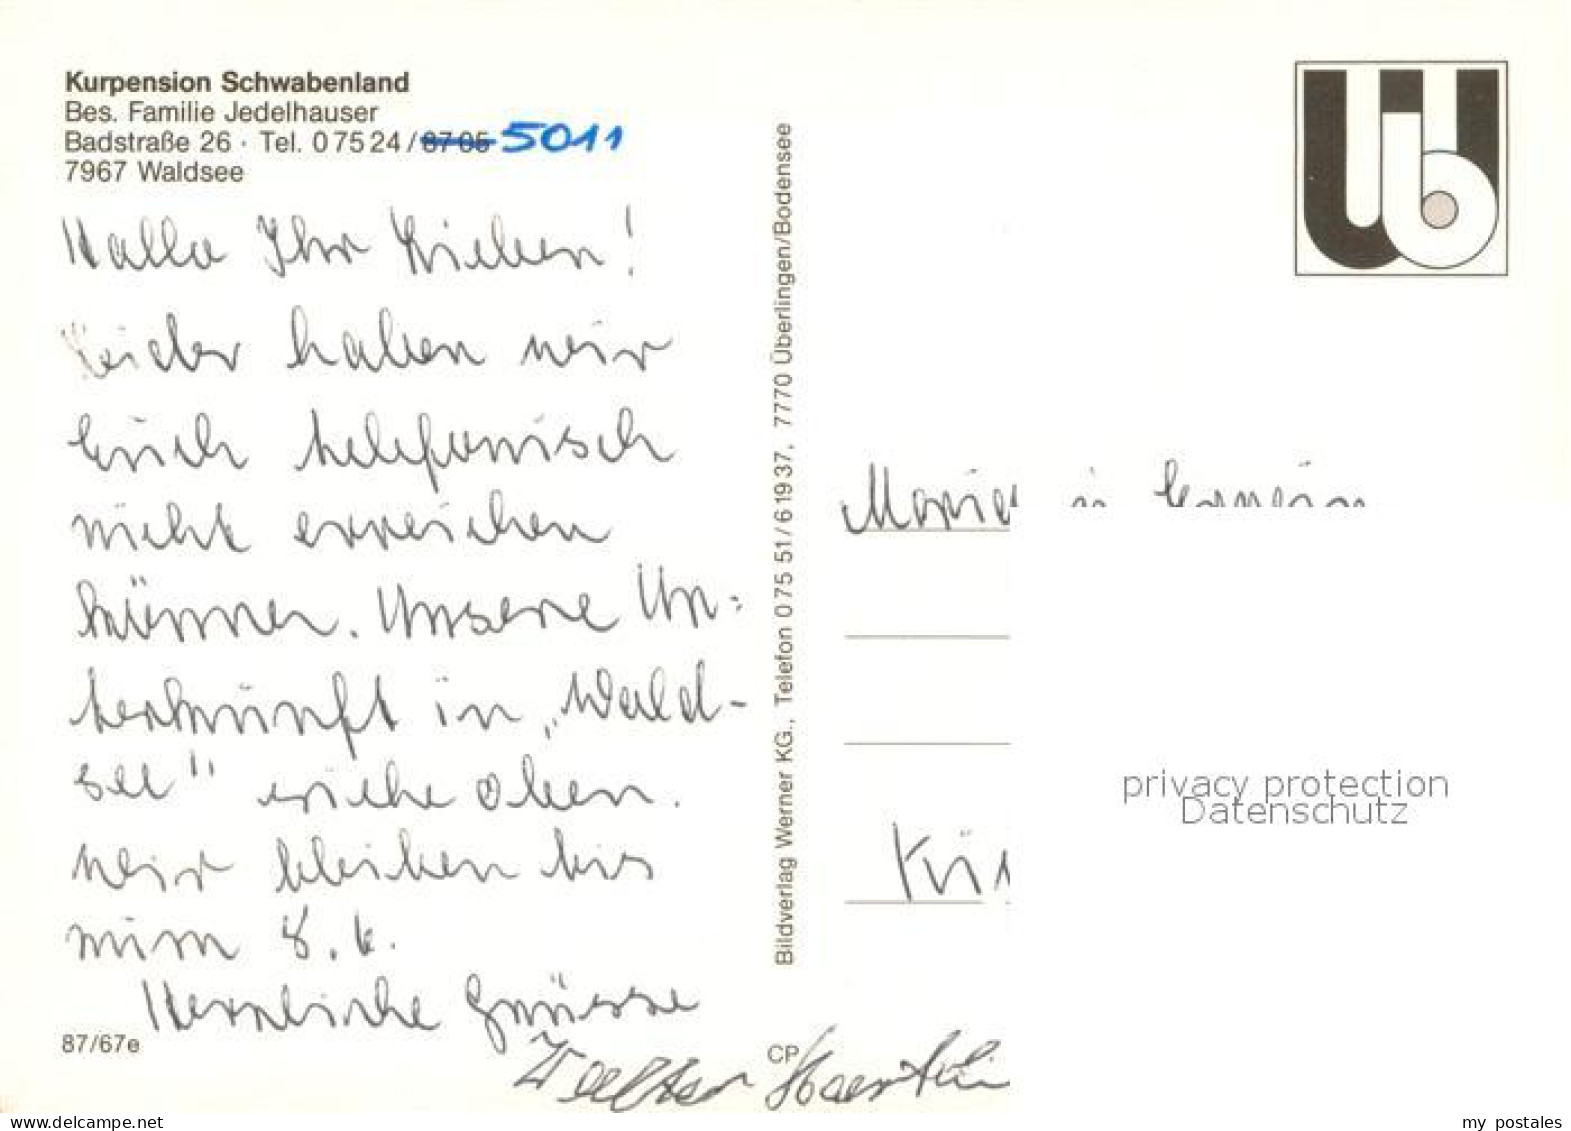 Kurpension Schwabenland
Bes. Familie Jedelhauser
Badstraße 26 · Tel. 0 75 24 / 87 05 5011
7967 Waldsee
Hallo Ihr Lieben!
Leider haben wir
Euch telefonisch
nicht erreichen
können. Unsere Un-
terkunft in „Wald-
see" siehe oben.
Wir bleiben bis
zum 8.6.
Herzliche Grüsse
Walter
87/67e
CP
Bildverlag Werner KG., Telefon 0 75 51/6 19 37, 7770 Überlingen/Bodensee
Ub
privacy protection
Datenschutz
www.delcampe.net
my_postales